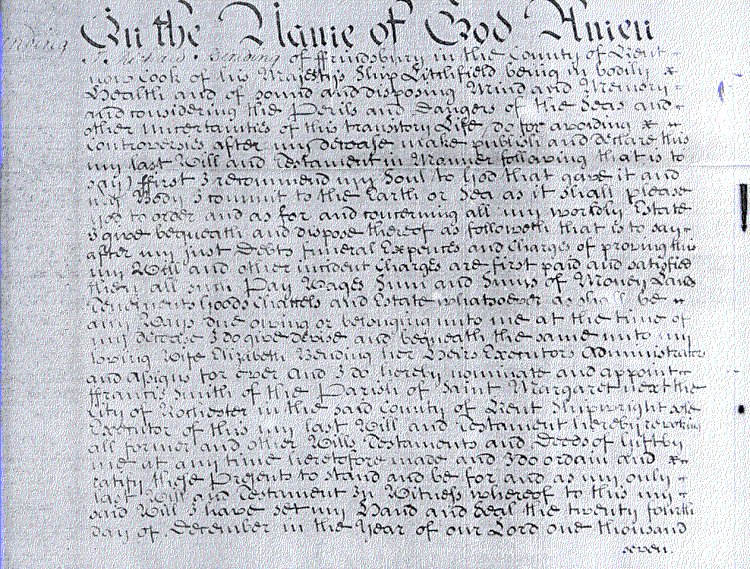 In the Name of God Amen
ending I Richard Bending of ffrindsbury in the County of Kent
now Cook of his Majestys Ship Litchfield being in bodily
Health and of sound and disposing Mind and Memory
and considering the Perils and Dangers of the Seas and
other Uncertainties of this transitory Life do for avoiding
Controversies after my decease make publish and declare this
my last Will and Testament in Manner following that is to
say ffirst I recommend my Soul to God that gave it and
my Body I commit to the Earth or Sea as it shall please
God to order and as for and concerning all my worldly Estate
I give bequeath and dispose thereof as followeth that is to say
after my just Debts funeral Expences and Charges of proving this
my Will and other incident Charges are first paid and satisfied
then all such Pay Wages Sum and Sums of Money Lands
Tenements Goods Chattels and Estate whatsoever as shall be
any Ways due owing or belonging unto me at the time of
my decease I do give devise and bequeath the same unto my
loving Wife Elizabeth Bending her Heirs Executors Administrators
and Assigns for ever and I do hereby nominate and appoint
ffrancis Smith of the Parish of Saint Margaret next the
City of Rochester in the said County of Kent Shipwright sole
Executor of this my last Will and Testament hereby revoking
all former and other Wills Testaments and Deeds of Gift by
me at any time heretofore made and I do ordain and
ratify these Presents to stand and be for and as my only
last Will and Testament In Witness whereof to this my
said Will I have set my Hand and Seal the twenty fourth
day of December in the Year of our Lord one thousand